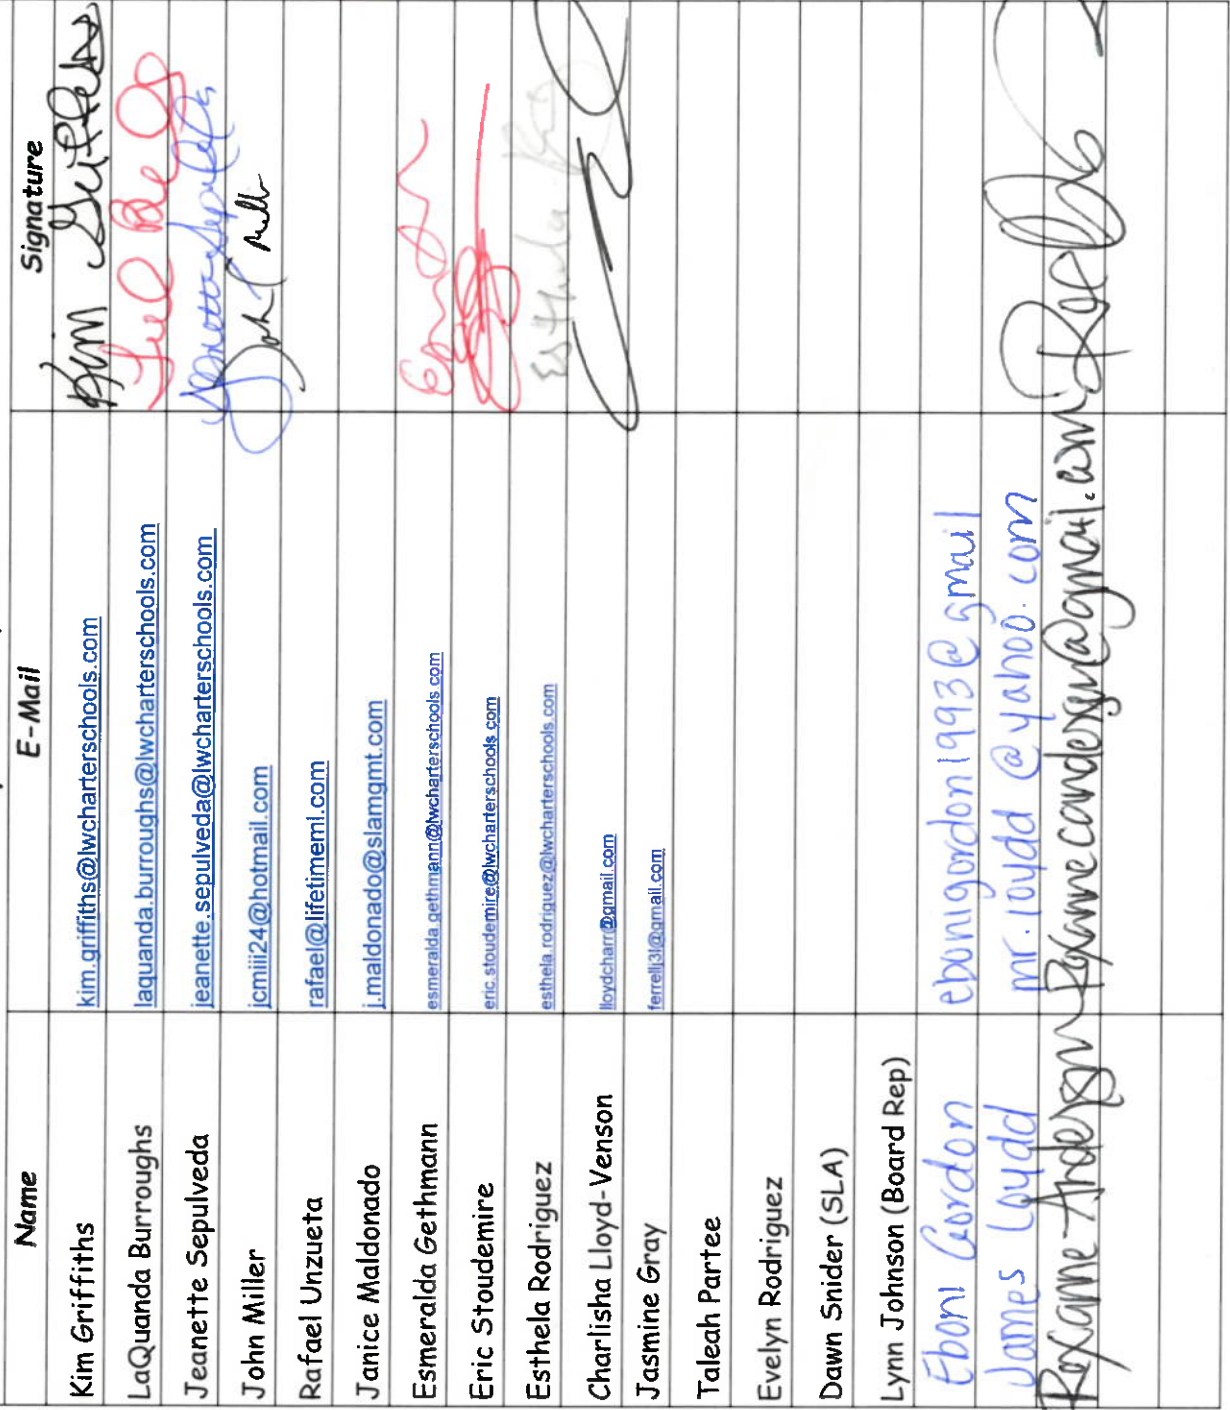 Name E-Mail Signature
Kim Griffiths kim.griffiths@lwcharterschools.com Kim Griffiths
LaQuanda Burroughs laquanda.burroughs@lwcharterschools.com
Jeanette Sepulveda jeanette.sepulveda@lwcharterschools.com Jeanette Sepulveda
John Miller jcmiii24@hotmail.com John C Mill
Rafael Unzueta rafael@lifetimeml.com
Janice Maldonado j.maldonado@slamgmt.com
Esmeralda Gethmann esmeralda.gethmann@lwcharterschools.com
Eric Stoudemire eric.stoudemire@lwcharterschools.com
Esthela Rodriguez esthela.rodriguez@lwcharterschools.com Esthela
Charlisha Lloyd-Venson lloydcharr@gmail.com
Jasmine Gray ferrellj3l@gmail.com
Taleah Partee
Evelyn Rodriguez
Dawn Snider (SLA)
Lynn Johnson (Board Rep)
Eboni Gordon ebonigordon1993@gmail
James Loydd mr.loydd@yahoo.com
Roxanne Anderson Roxannecanderson@gmail.com